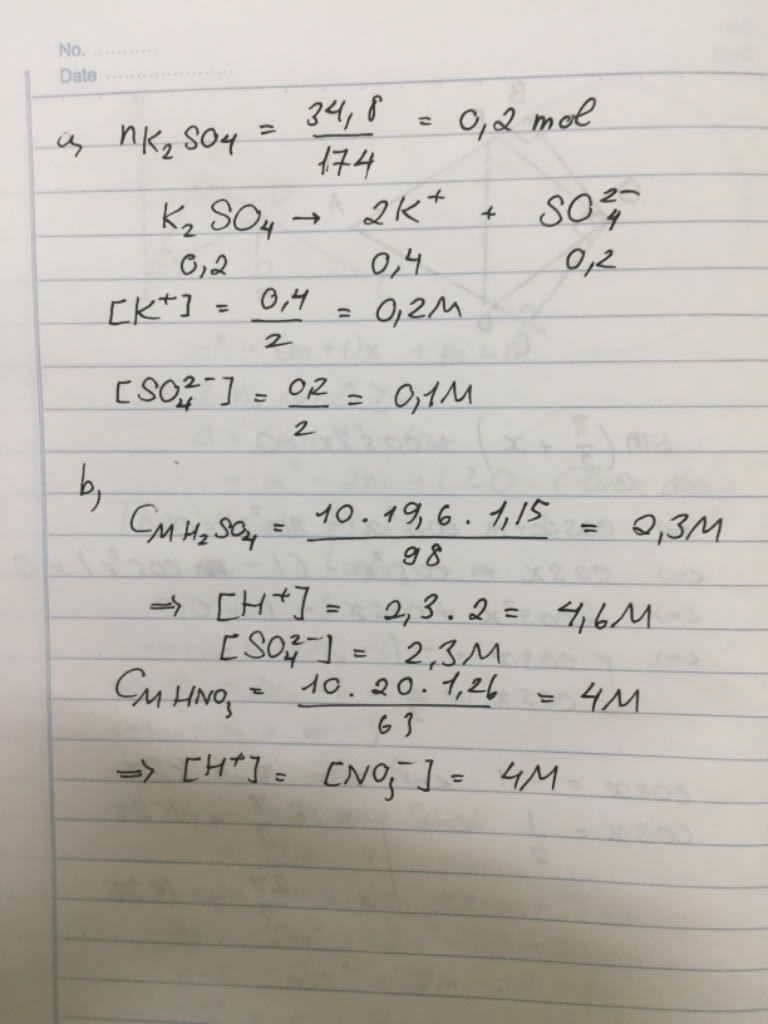 No. ............
Date ........................
a, nK₂SO₄ = 34,8/174 = 0,2 mol
K₂SO₄ → 2K⁺ + SO₄²⁻
0,2 0,4 0,2
[K⁺] = 0,4/2 = 0,2M
[SO₄²⁻] = 0,2/2 = 0,1M
b,
CM H₂SO₄ = 10.19,6.1,15/98 = 2,3M
⇒ [H⁺] = 2,3.2 = 4,6M
[SO₄²⁻] = 2,3M
CM HNO₃ = 10.20.1,26/63 = 4M
⇒ [H⁺] = [NO₃⁻] = 4M